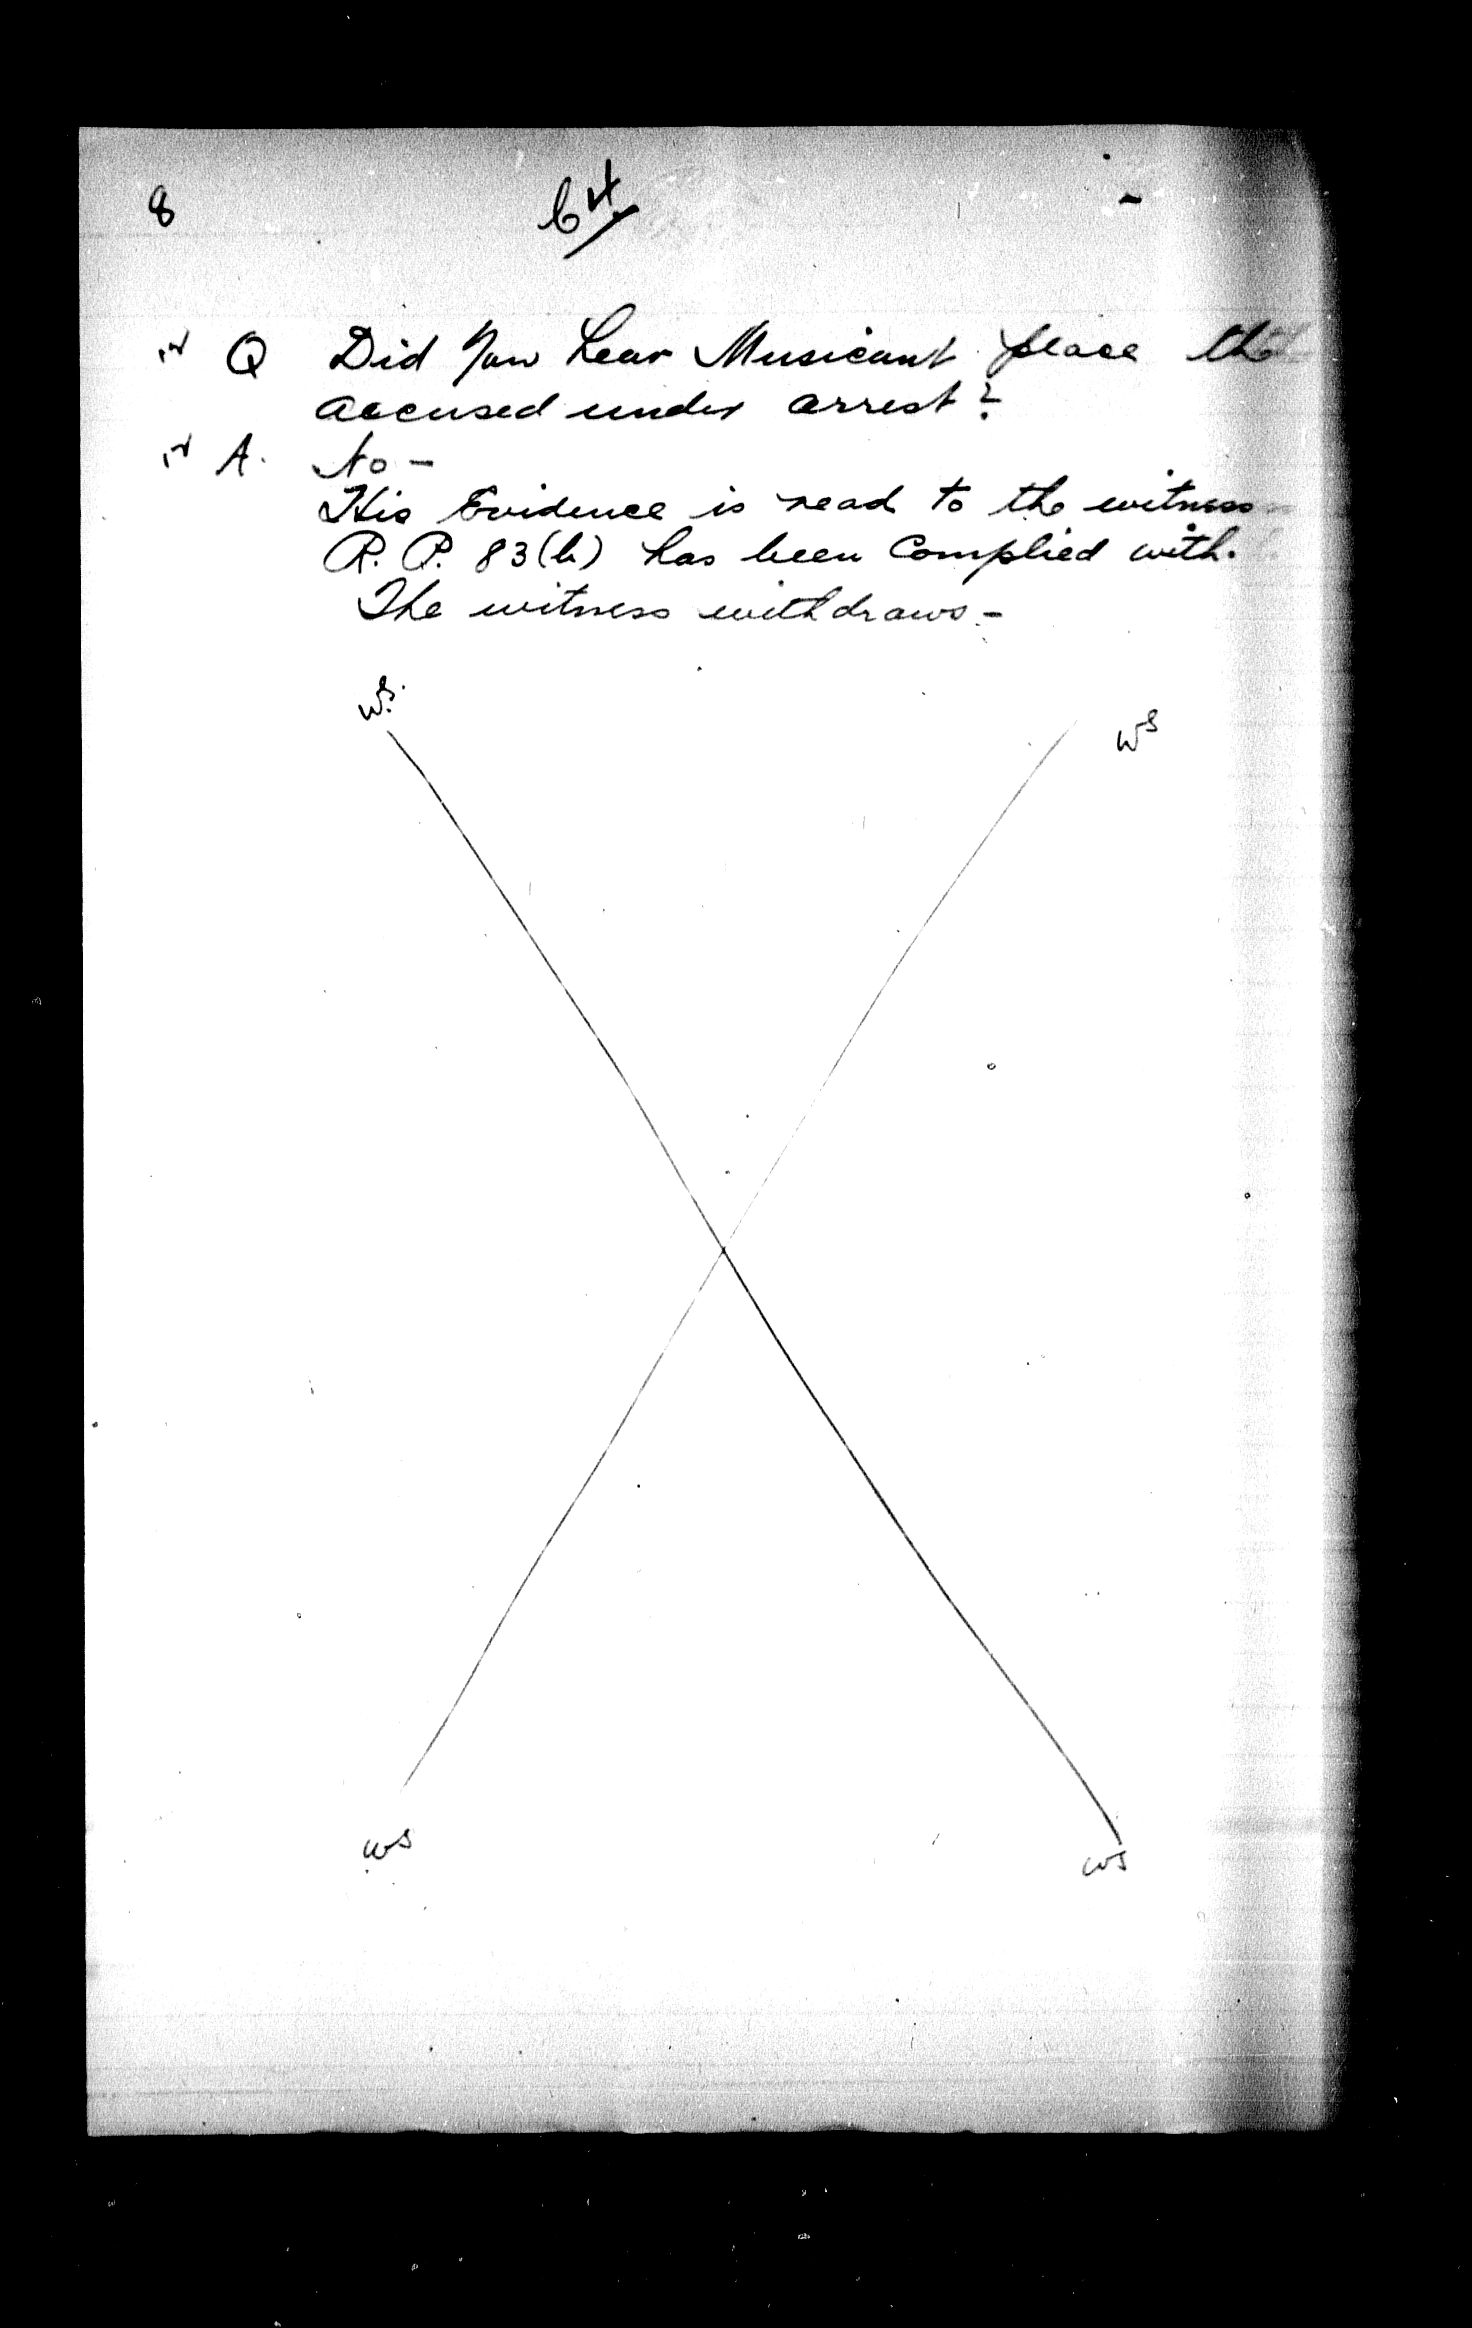 8
Q Did you hear Musicant place the
accused under arrest?
A. No -
His Evidence is read to the witness
R. P. 83(b) has been Complied with.
The witness withdraws -
W.S. WS
WS WS